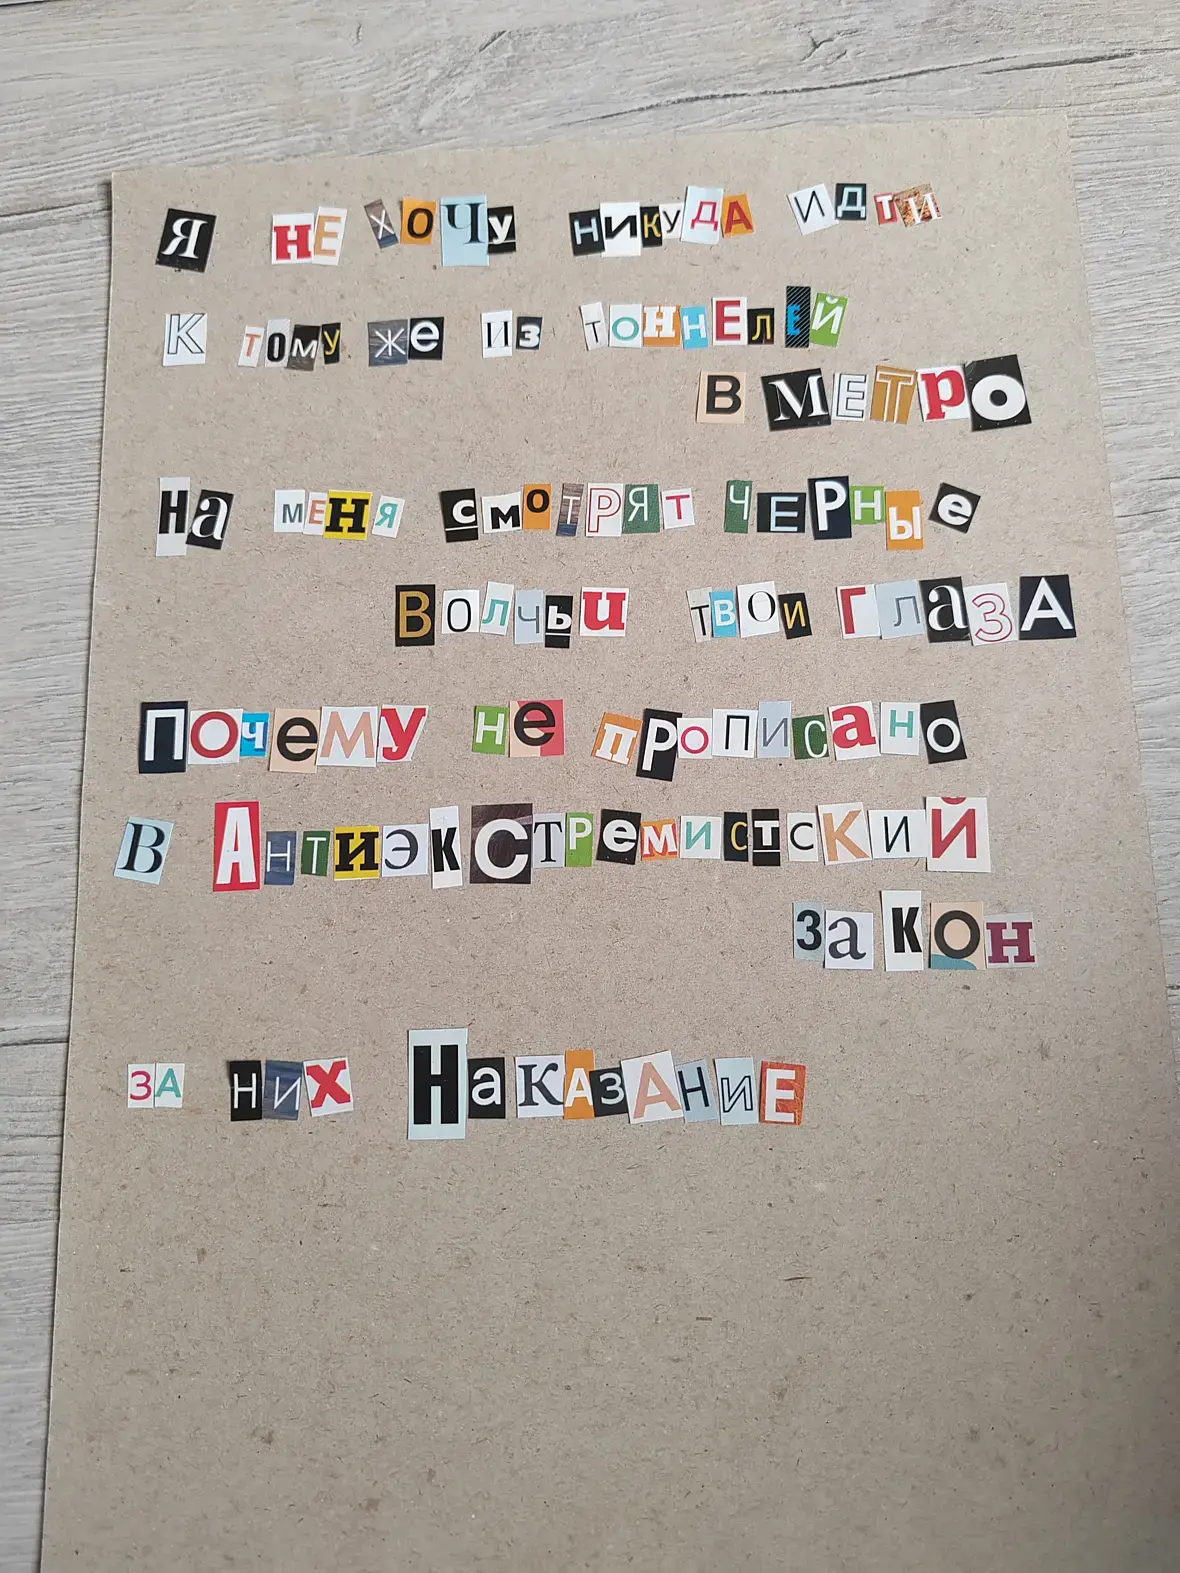 Я не хочу никуда идти
К тому же из тоннелей
в метро
На меня смотрят черные
Волчьи твои глаза
Почему не прописано
в Антиэкстремистский
закон
за них Наказание